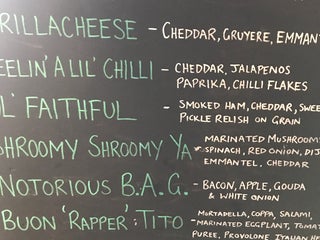 RILLACHEESE - CHEDDAR, GRUYERE, EMMAN
EELIN' A LIL' CHILLI - CHEDDAR, JALAPENOS
PAPRIKA, CHILLI FLAKES
L' FAITHFUL - SMOKED HAM, CHEDDAR, SWE
PICKLE RELISH ON GRAIN
SHROOMY SHROOMY YA - MARINATED MUSHROOM
SPINACH, RED ONION, DIJ
EMMENTEL, CHEDDAR
NOTORIOUS B.A.G. - BACON, APPLE, GOUDA
& WHITE ONION
BUON 'RAPPER': TITO - MORTADELLA, COPPA, SALAMI,
MARINATED EGGPLANT, TOM
PUREE, PROVOLONE ITALIAN HE